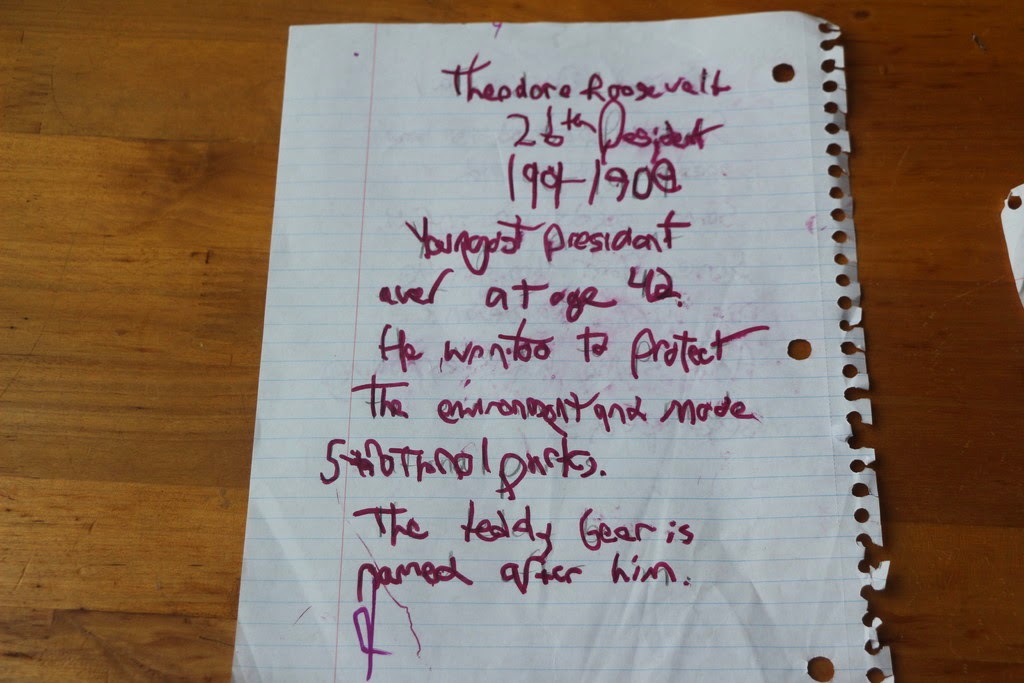 Theodore Roosevelt
26th President
1901-1909
Youngest president
ever at age 42.
He wanted to protect
the environment and made
5 national parks.
The teddy bear is
named after him.